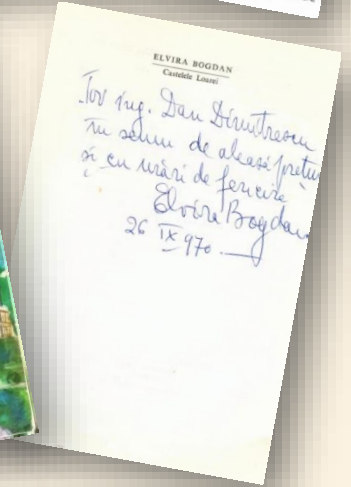 ELVIRA BOGDAN
Castelele Loarei
Tov ing. Dan Dimitrescu
în semn de aleasă prețui
și cu urări de fericire
Elvira Bogdan
26 IX 970